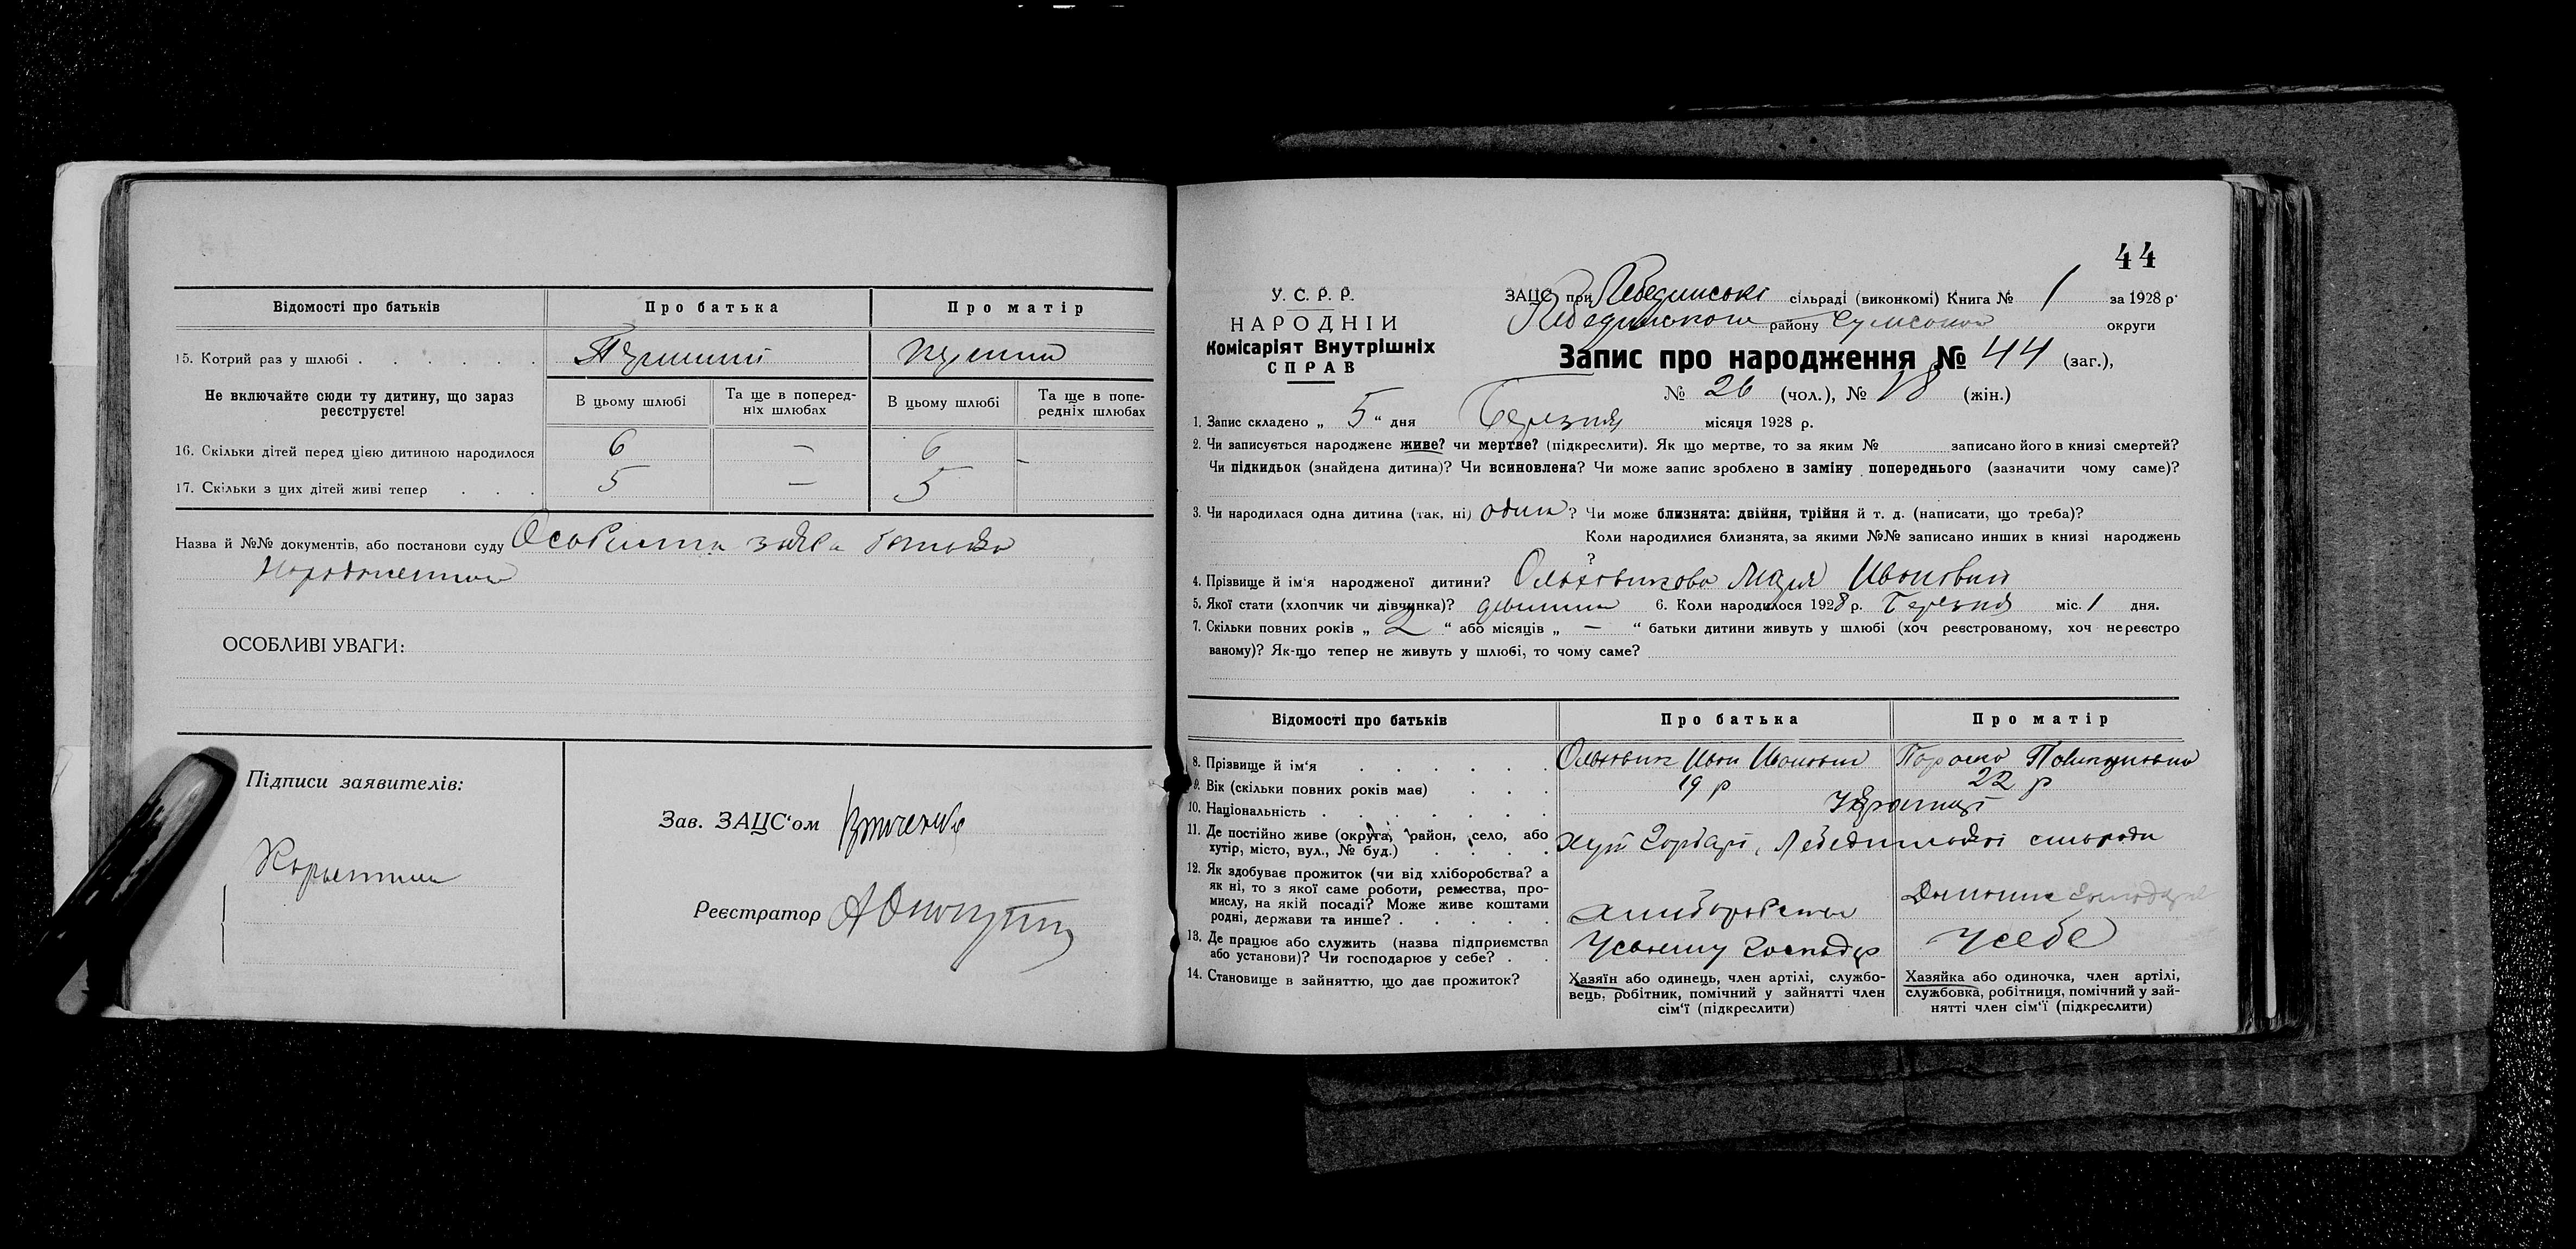 Відомості про батьків
Про батька
Про матір
15. Котрий раз у шлюбі . . . . . .
Перший
перший
Не включайте сюди ту дитину, що зараз реєструєте!
В цьому шлюбі
Та ще в поперед-
ніх шлюбах
В цьому шлюбі
Та ще в попе-
редніх шлюбах
16. Скільки дітей перед цією дитиною народилося
6 — 6 —
17. Скільки з цих дітей живі тепер . . .
5 — 5
Назва й №№ документів, або постанови суду Особиста заява батька
ОСОБЛИВІ УВАГИ:
Підписи заявителів:
Зав. ЗАЦС‘ом
Реєстратор
44
У. С. Р. Р.
НАРОДНІИ
Комісаріят Внутрішніх
СПРАВ
ЗАЦС при Лебединські сільраді (виконкомі) Книга № 1 за 1928 р.
Лебединского району Сумскои округи
Запис про народження № 44 (заг.),
№ 26 (чол.), № 18 (жін.)
1. Запис складено „ 5 “ дня Березня місяця 1928 р.
2. Чи записується народжене живе? чи мертве? (підкреслити). Як що мертве, то за яким № записано його в книзі смертей?
Чи підкидьок (знайдена дитина)? Чи всиновлена? Чи може запис зроблено в заміну попереднього (зазначити чому саме)?
3. Чи народилася одна дитина (так, ні) одна ? Чи може близнята: двійня, трійня й т. д. (написати, що треба)?
Коли народилися близнята, за якими №№ записано инших в книзі народжень
?
4. Прізвище й ім‘я народженої дитини? Ольховикова Мария Ивановна
5. Якої стати (хлопчик чи дівчинка)? 6. Коли народилося 1928 р. Березня міс. 1 дня.
7. Скільки повних років „ 2 “ або місяців „ — “ батьки дитини живуть у шлюбі (хоч реєстрованому, хоч нереєстро
ваному)? Як-що тепер не живуть у шлюбі, то чому саме?
Відомості про батьків
Про батька
Про матір
8. Прізвище й ім‘я . . . . . .
Ольховик Иван Иванович
9. Вік (скільки повних років має) . . .
19 р
22 р
10. Національність . . . . . . .
Українці
11. Де постійно живе (округа, район, село, або
хутір, місто, вул., № буд.) . . . .
хут Горбарі, Лебединської сільради
12. Як здобуває прожиток (чи від хліборобства? а
як ні, то з якої саме роботи, ремества, про-
мислу, на якій посаді? Може живе коштами
родні, держави та инше? . . . . .
хлиборобства
13. Де працює або служить (назва підприємства
або установи)? Чи господарює у себе? . .
У своему господар
У себе
14. Становище в зайняттю, що дає прожиток?
Хазяїн або одинець, член артілі, службо-
вець, робітник, помічний у зайнятті член
сім‘ї (підкреслити)
Хазяйка або одиночка, член артілі,
службовка, робітниця, помічний у зай-
нятті член сім‘ї (підкреслити)